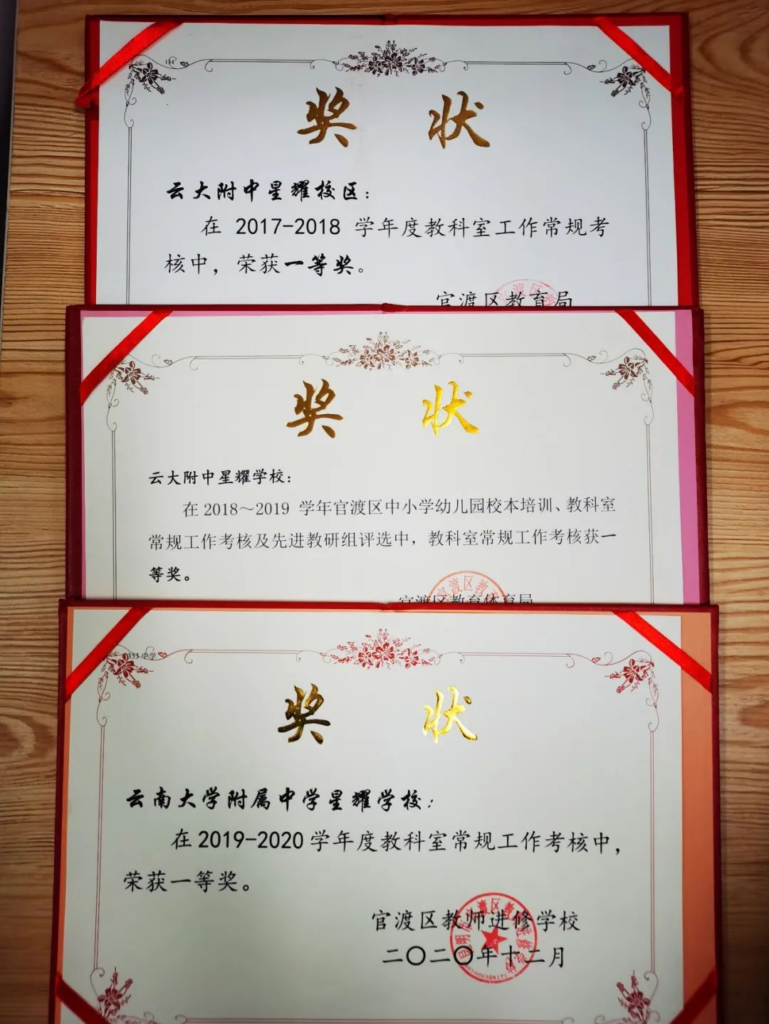 奖 状
云大附中星耀校区：
在 2017-2018 学年度教科室工作常规考
核中，荣获一等奖。
官渡区教育局
奖 状
云大附中星耀学校：
在2018～2019 学年官渡区中小学幼儿园校本培训、教科室
常规工作考核及先进教研组评选中，教科室常规工作考核获一
等奖。
官渡区教育体育局
奖 状
云南大学附属中学星耀学校：
在2019-2020学年度教科室常规工作考核中，
荣获一等奖。
官渡区教师进修学校
二〇二〇年十二月